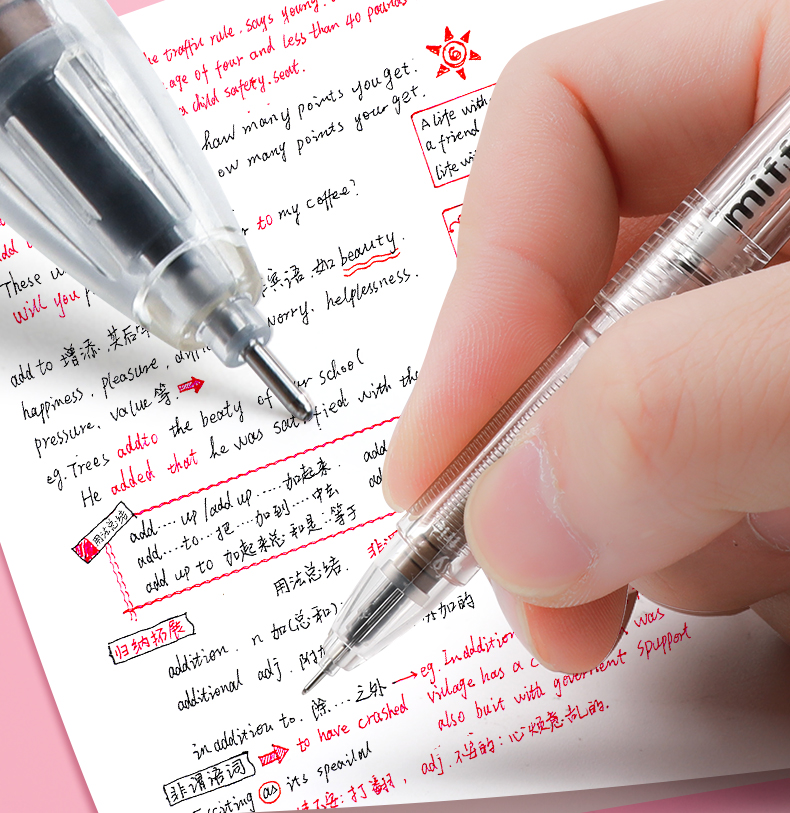 he traffic rule, says young
age of four and less than 40 pounds
a child safety. seat.
how many points you get.
ow many points your get.
A life with
a friend
life wit
to my coffee?
These w
will you
宾语.如 beauty.
add to 增添.其后
worry, helplessness.
happiness, pleasure,
pressure, value 等.
eg. Trees addto the beaty of our school
He added that he was satisfied with the
用法总结
add.... up/add up ..... 加起来. add
add....to...把...加到...中去 ad
add up to 加起来总和是...等于
用法总结.
归纳拓展
addition. n 加(总和);
additional adj. 附加 外加的
in addition to. 除....之外 → eg. Inaddition
was
village has a c
also buit with goverment spupport
to have crashed
非谓语词
citing as its speailal
打翻, adj. 不安的: 心烦意乱的.
miff